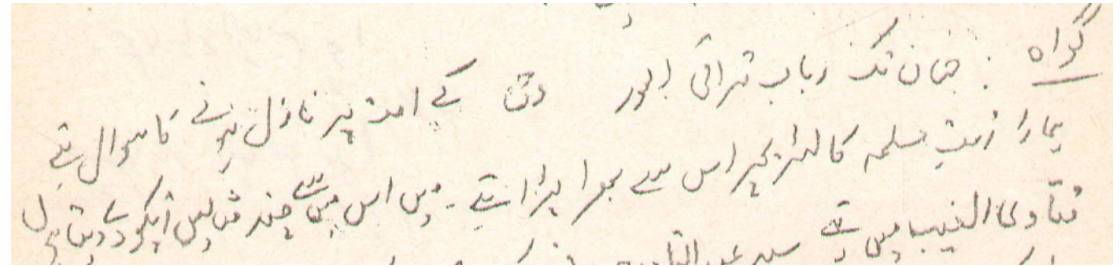 گواہ : جہاں تک رباب قرآنی اور وحی کے امت پر نازل ہونے کا سوال ہے
ہمارا امت مسلمہ کا لٹریچر اس سے بھرا پڑا ہے۔ میں اس میں سے چند مثالیں آپکو دیتا ہوں
فتاوی الغیب میں ہے سید عبد القادر